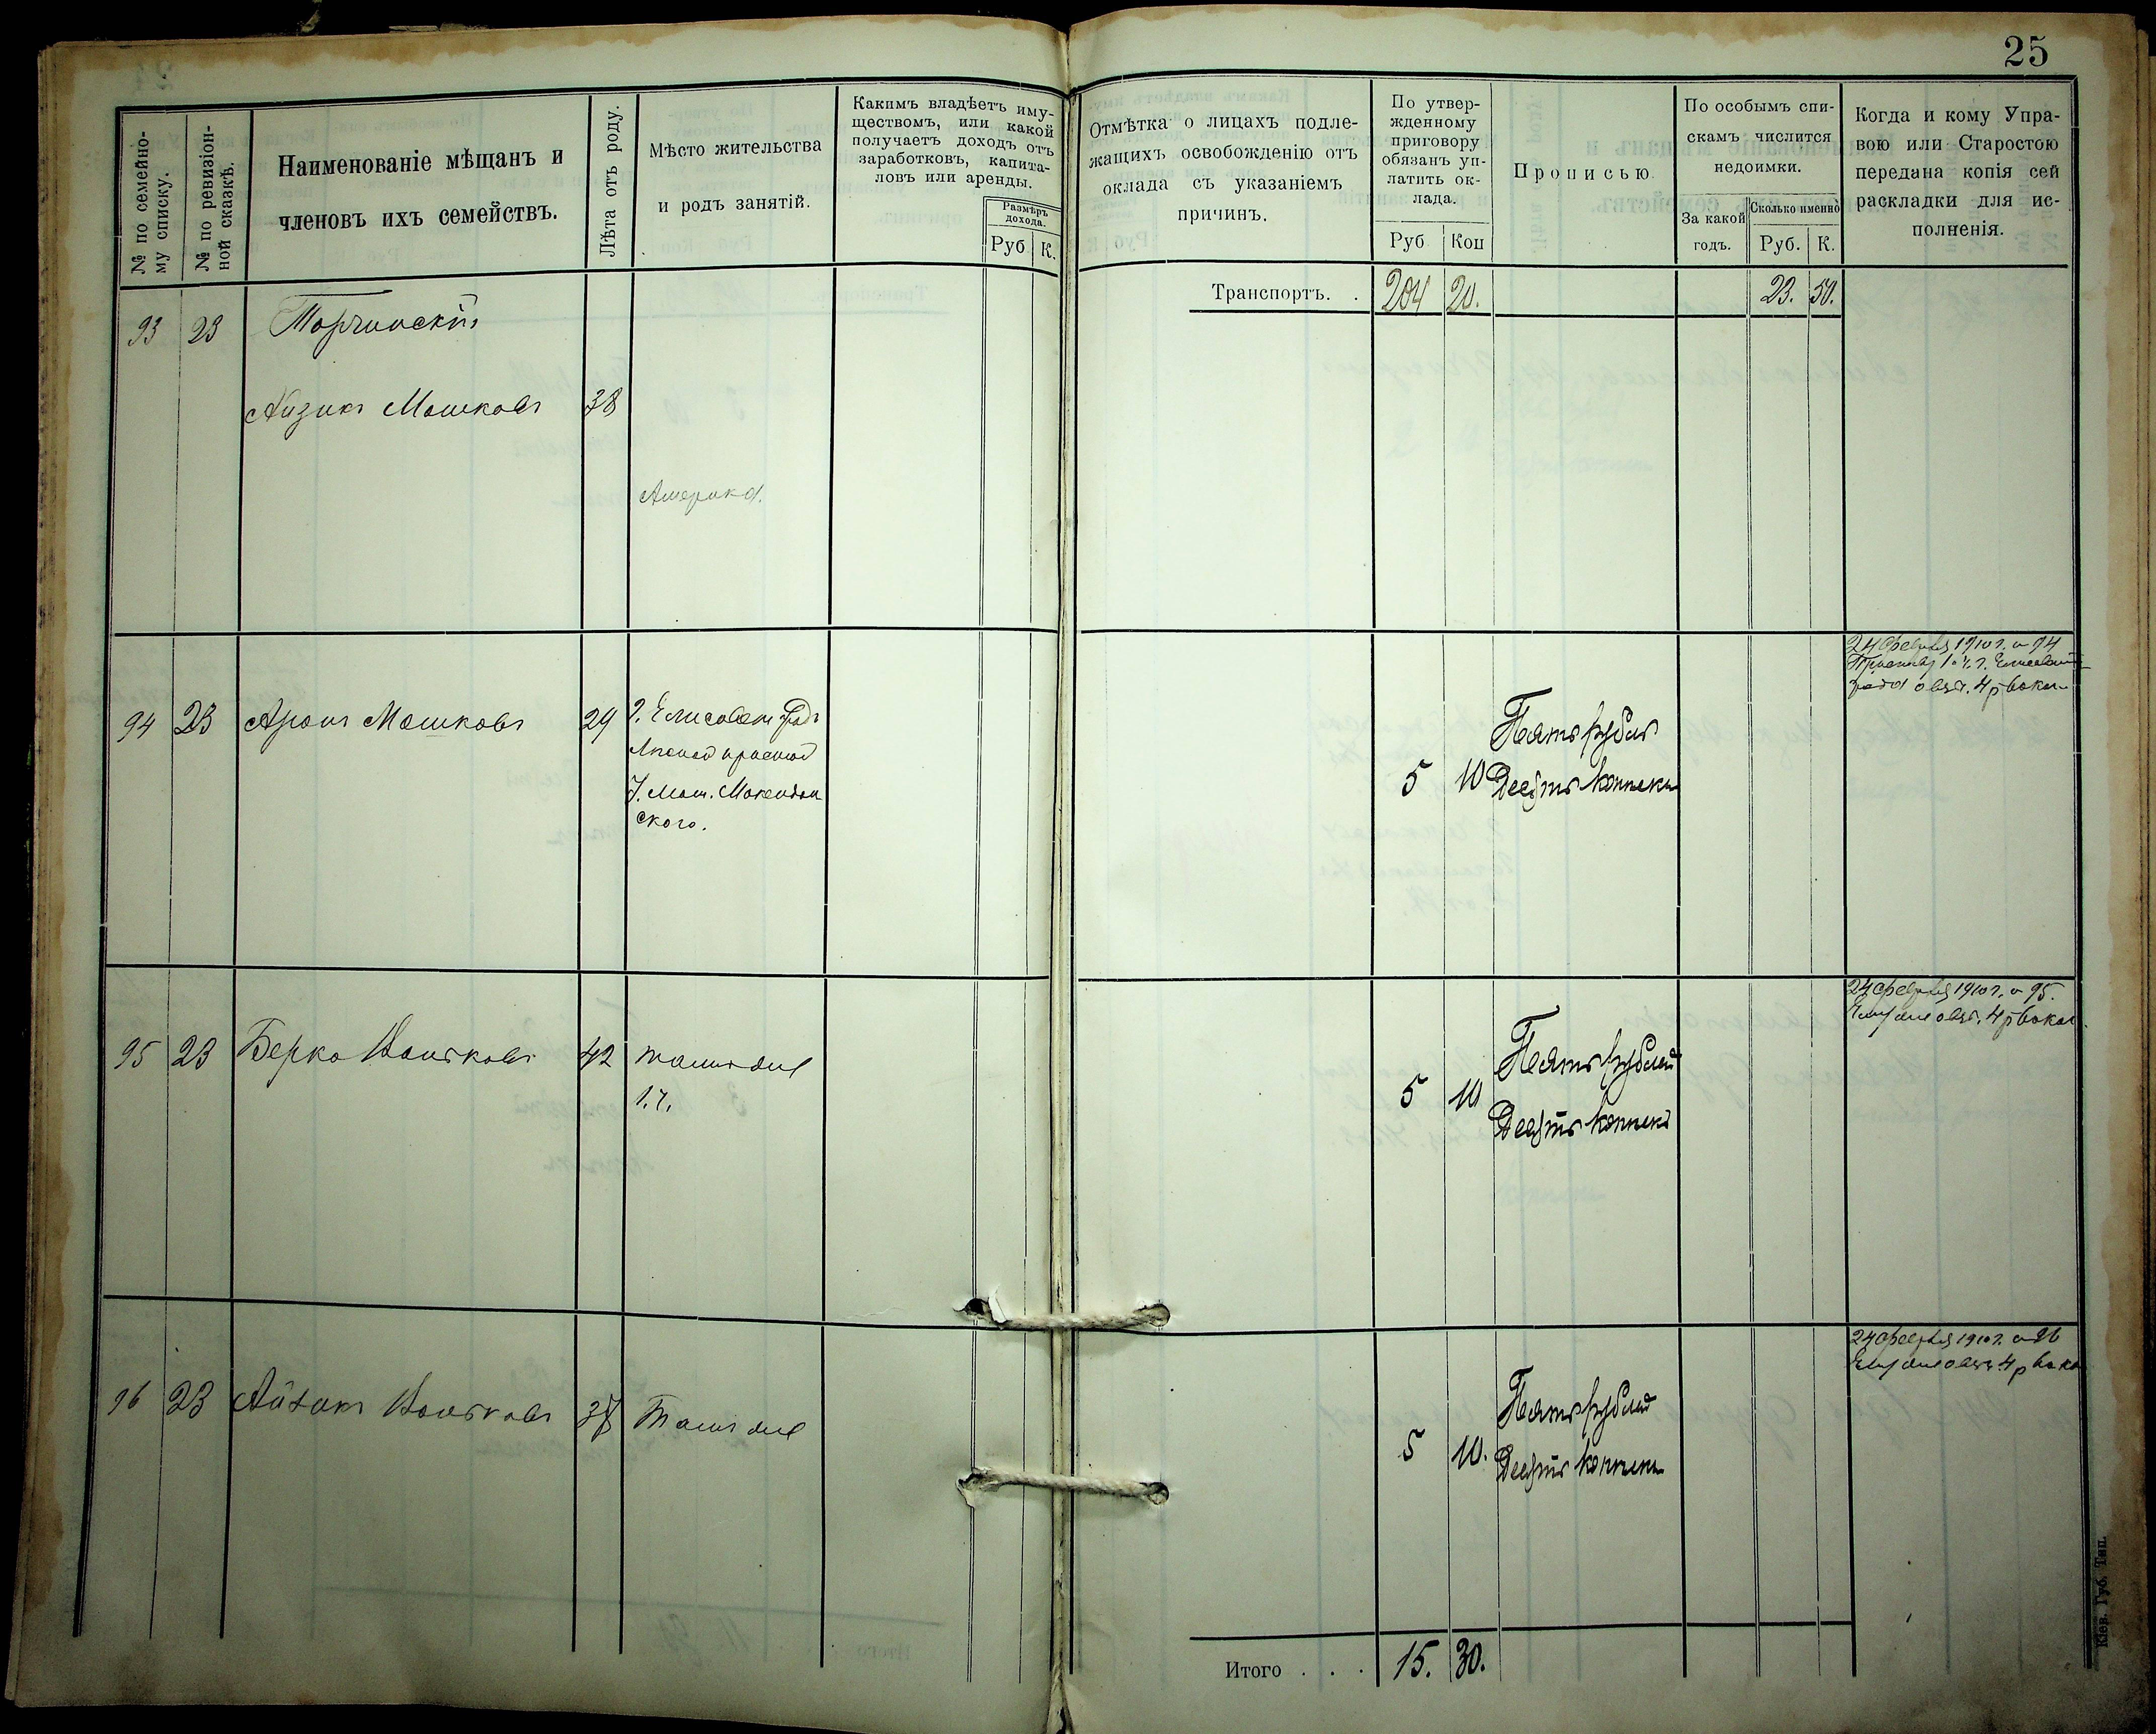 25
№ по семейно-
му списку.
№ по ревизіон-
ной сказкѣ.
Наименованіе мѣщанъ и
членовъ ихъ семействъ.
Лѣта отъ роду.
Мѣсто жительства
и родъ занятій.
Какимъ владѣетъ иму-
ществомъ, или какой
получаетъ доходъ отъ
заработковъ, капита-
ловъ или аренды.
Размѣръ
дохода.
Руб. К.
Отмѣтка о лицахъ подле-
жащихъ освобожденію отъ
оклада съ указаніемъ
причинъ.
По утвер-
жденному
приговору
обязанъ уп-
латить ок-
лада.
Руб Коп
Прописью.
По особымъ спи-
скамъ числится
недоимки.
За какой
годъ.
Сколько именно
Руб. К.
Когда и кому Упра-
вою или Старостою
передана копія сей
раскладки для ис-
полненія.
Транспортъ. . 204 20. 23. 50.
93 23 Торчинскій
Айзикъ Мошковъ 38
Америка.
24 февраля 1910 г. № 94
94 23 Аронъ Мошковъ 29 г. Елисаветградъ
ского.
5 10 Пять рублей
Десять копѣекъ
24 февраля 1910 г. № 95.
95 23 Берко Ваньковъ 42 тамъ же
1. ч.
5 10 Пять рублей
Десять копѣекъ
24 февраля 1910 г. № 96
96 23 Айзикъ Ваньковъ 37 Тамъ же
5 10. Пять рублей
Десять копѣекъ
Итого . . . 15. 30.
Кіев. Губ. Тип.